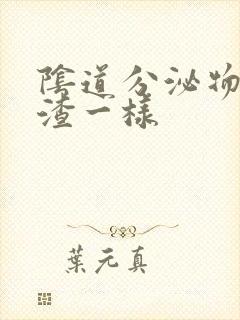 陰道分泌物
渣一樣
葉元真